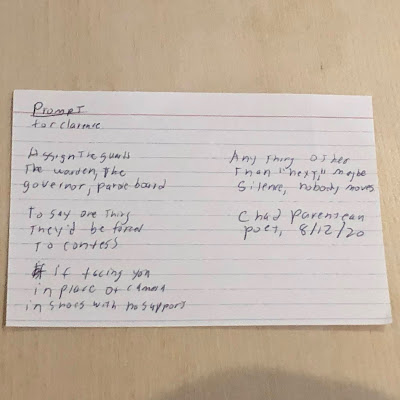 Prompt
for Clarence
Assign the guards
The warden, the
governor, parole board
To say one thing
They'd be forced
To confess
if facing you
in place of camera
in shoes with no support
Any thing other
Than "next," maybe
Silence, nobody moves
Chad Parenteau
poet, 8/12/20